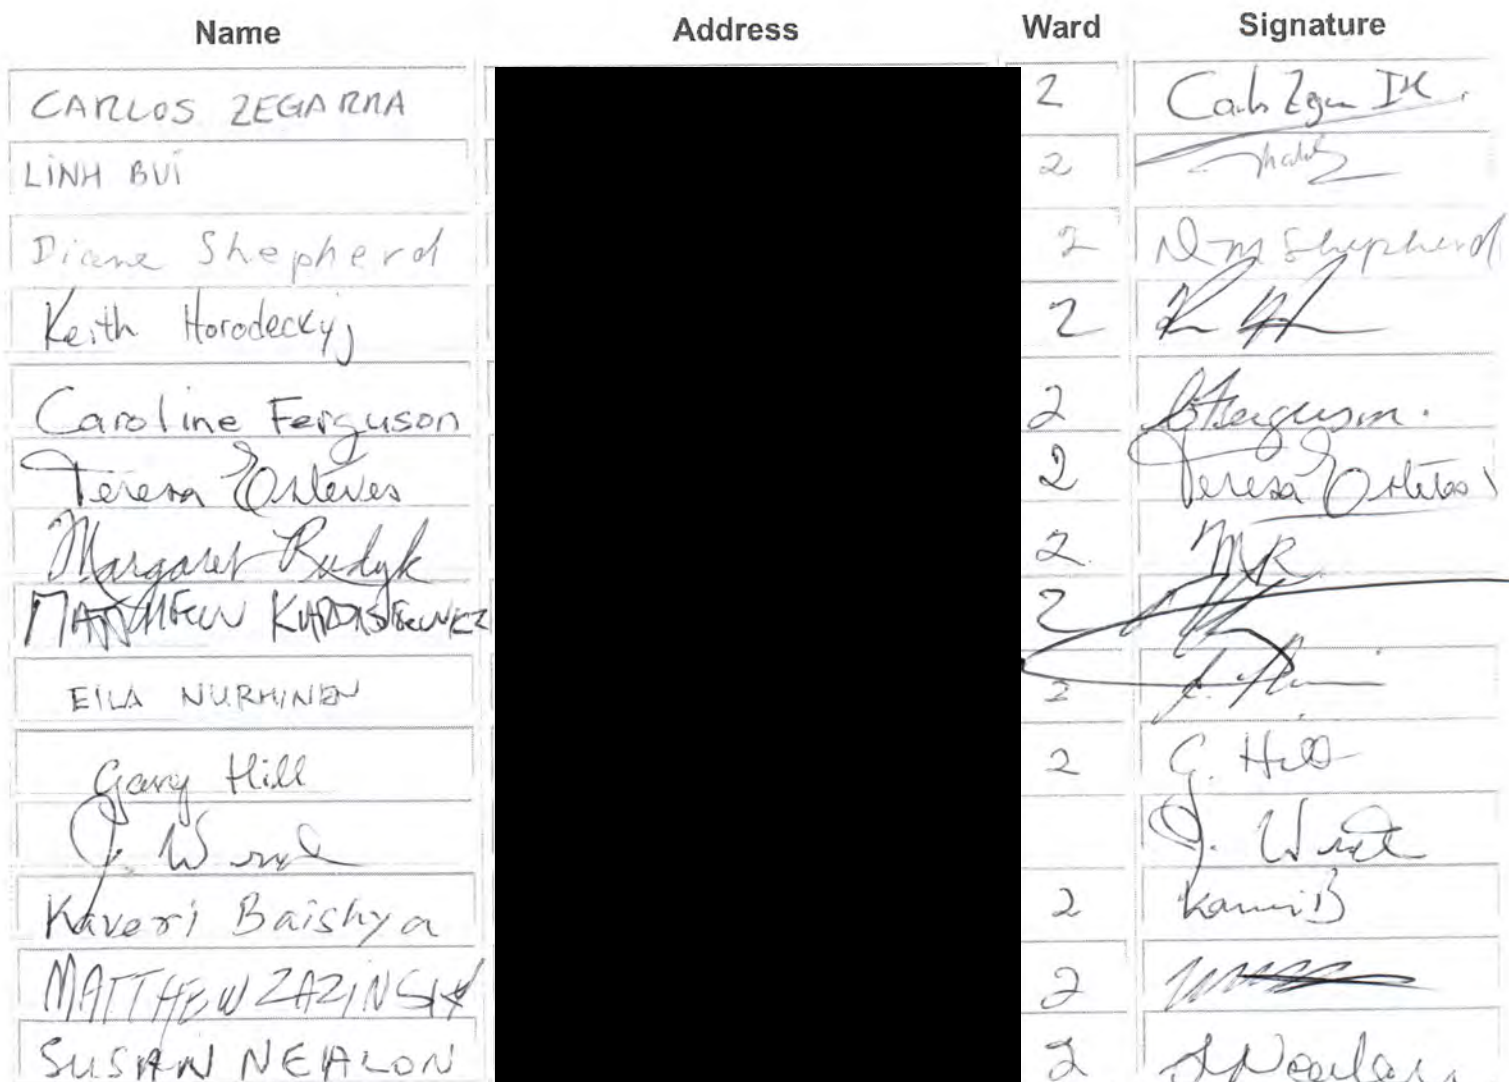 Name Address Ward Signature
CARLOS ZEGARRA 2
LINH BUI 2
Diane Shepherd 2 D m Shepherd
Keith Horodeckyj 2
Caroline Ferguson 2 C Ferguson.
Teresa Esteves 2 Teresa Esteves
Margaret Rudyk 2 MR
MATTHEW 2
EILA NURMINEN 2
Gary Hill 2 G. Hill
J. J.
Kaveri Baishya 2 Kaveri B
MATTHEW ZAZINSKY 2
SUSAN NEALON 2